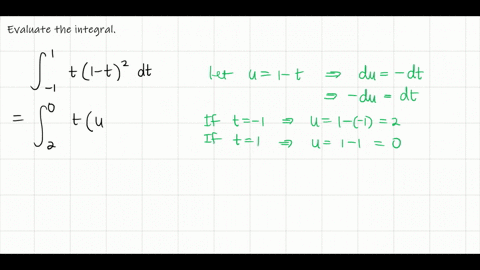 Evaluate the integral.
∫_{-1}^{1} t(1-t)² dt
let u = 1-t ⇒ du = -dt
⇒ -du = dt
= ∫_{2}^{0} t(u
If t=-1 ⇒ u = 1-(-1) = 2
If t=1 ⇒ u = 1-1 = 0